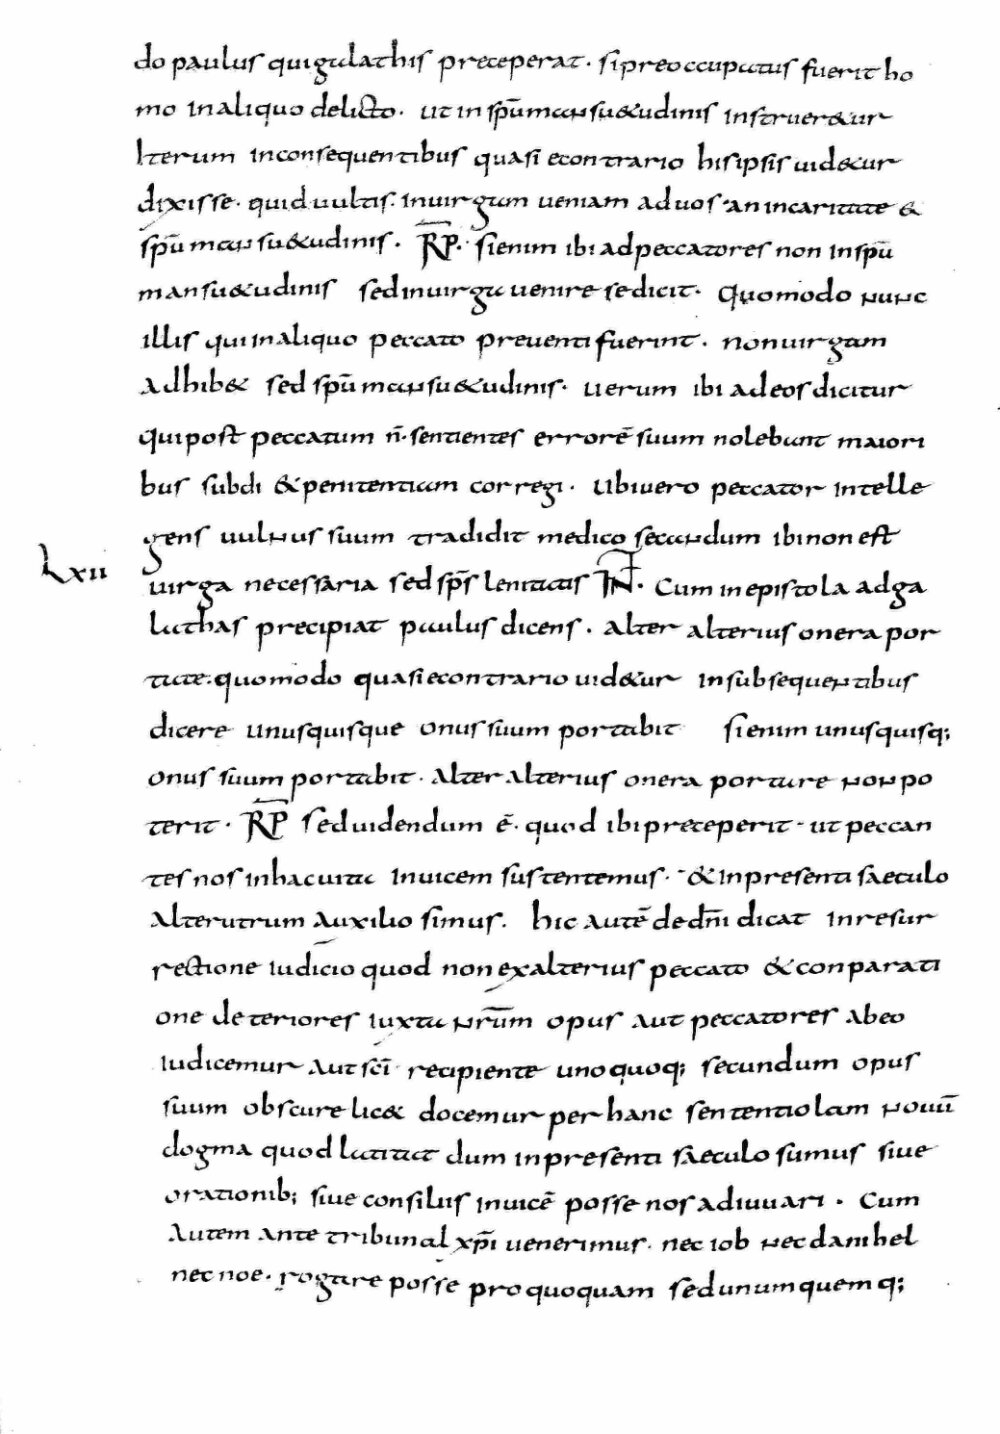 do paulus qui galathis preceperat · si preoccupatus fuerit ho
mo in aliquo delicto · ut in sp̄u mansu&udinis instruer&ur
Iterum in consequentibus quasi econtrario his ipsis uid&ur
dixisse · quid uultis · in uirgam ueniam ad uos · an in caritate &
sp̄u mansu&udinis · R̄P̄ · si enim ibi ad peccatores non in sp̄u
mansu&udinis sed in uirga uenire se dicit · Quomodo nunc
illis qui in aliquo peccato preuenti fuerint · non uirgam
adhib& sed sp̄u mansu&udinis · uerum ibi ad eos dicitur
qui post peccatum n̄ · sentientes errorē suum nolebant maiori
bus subdi & penitentiam corregi · Ubi uero peccator intelle
gens uulnus suum tradidit medico secundum ibi non est
Lxii
uirga necessaria sed sp̄s lenitatis IN̄T · Cum in epistola ad ga
lathas precipiat paulus dicens · Alter alterius onera por
tate · quomodo quasi econtrario uid&ur in subsequentibus
dicere unusquisque onus suum portabit si enim unusquisq;
onus suum portabit · Alter alterius onera portare non po
terit · R̄P̄ Sed uidendum ē · quod ibi preceperit · ut peccan
tes nos in hac uita inuicem sustentemus · & in presenti saeculo
alterutrum auxilio simus . hic autē de dn̄i dicat in resur
rectione iudicio quod non ex alterius peccato & conparati
one deteriores iuxta nr̄um opus aut peccatores ab eo
iudicemur aut sc̄i recipiente unoquoq; secundum opus
suum obscure lic& docemur per hanc sententiolam nouū
dogma quod latitat dum in presenti saeculo sumus siue
orationib; siue consiliis inuicē posse nos adiuuari · Cum
autem ante tribunal xp̄i uenerimus · nec iob nec danihel
nec noe · rogare posse pro quoquam sed unumquemq;